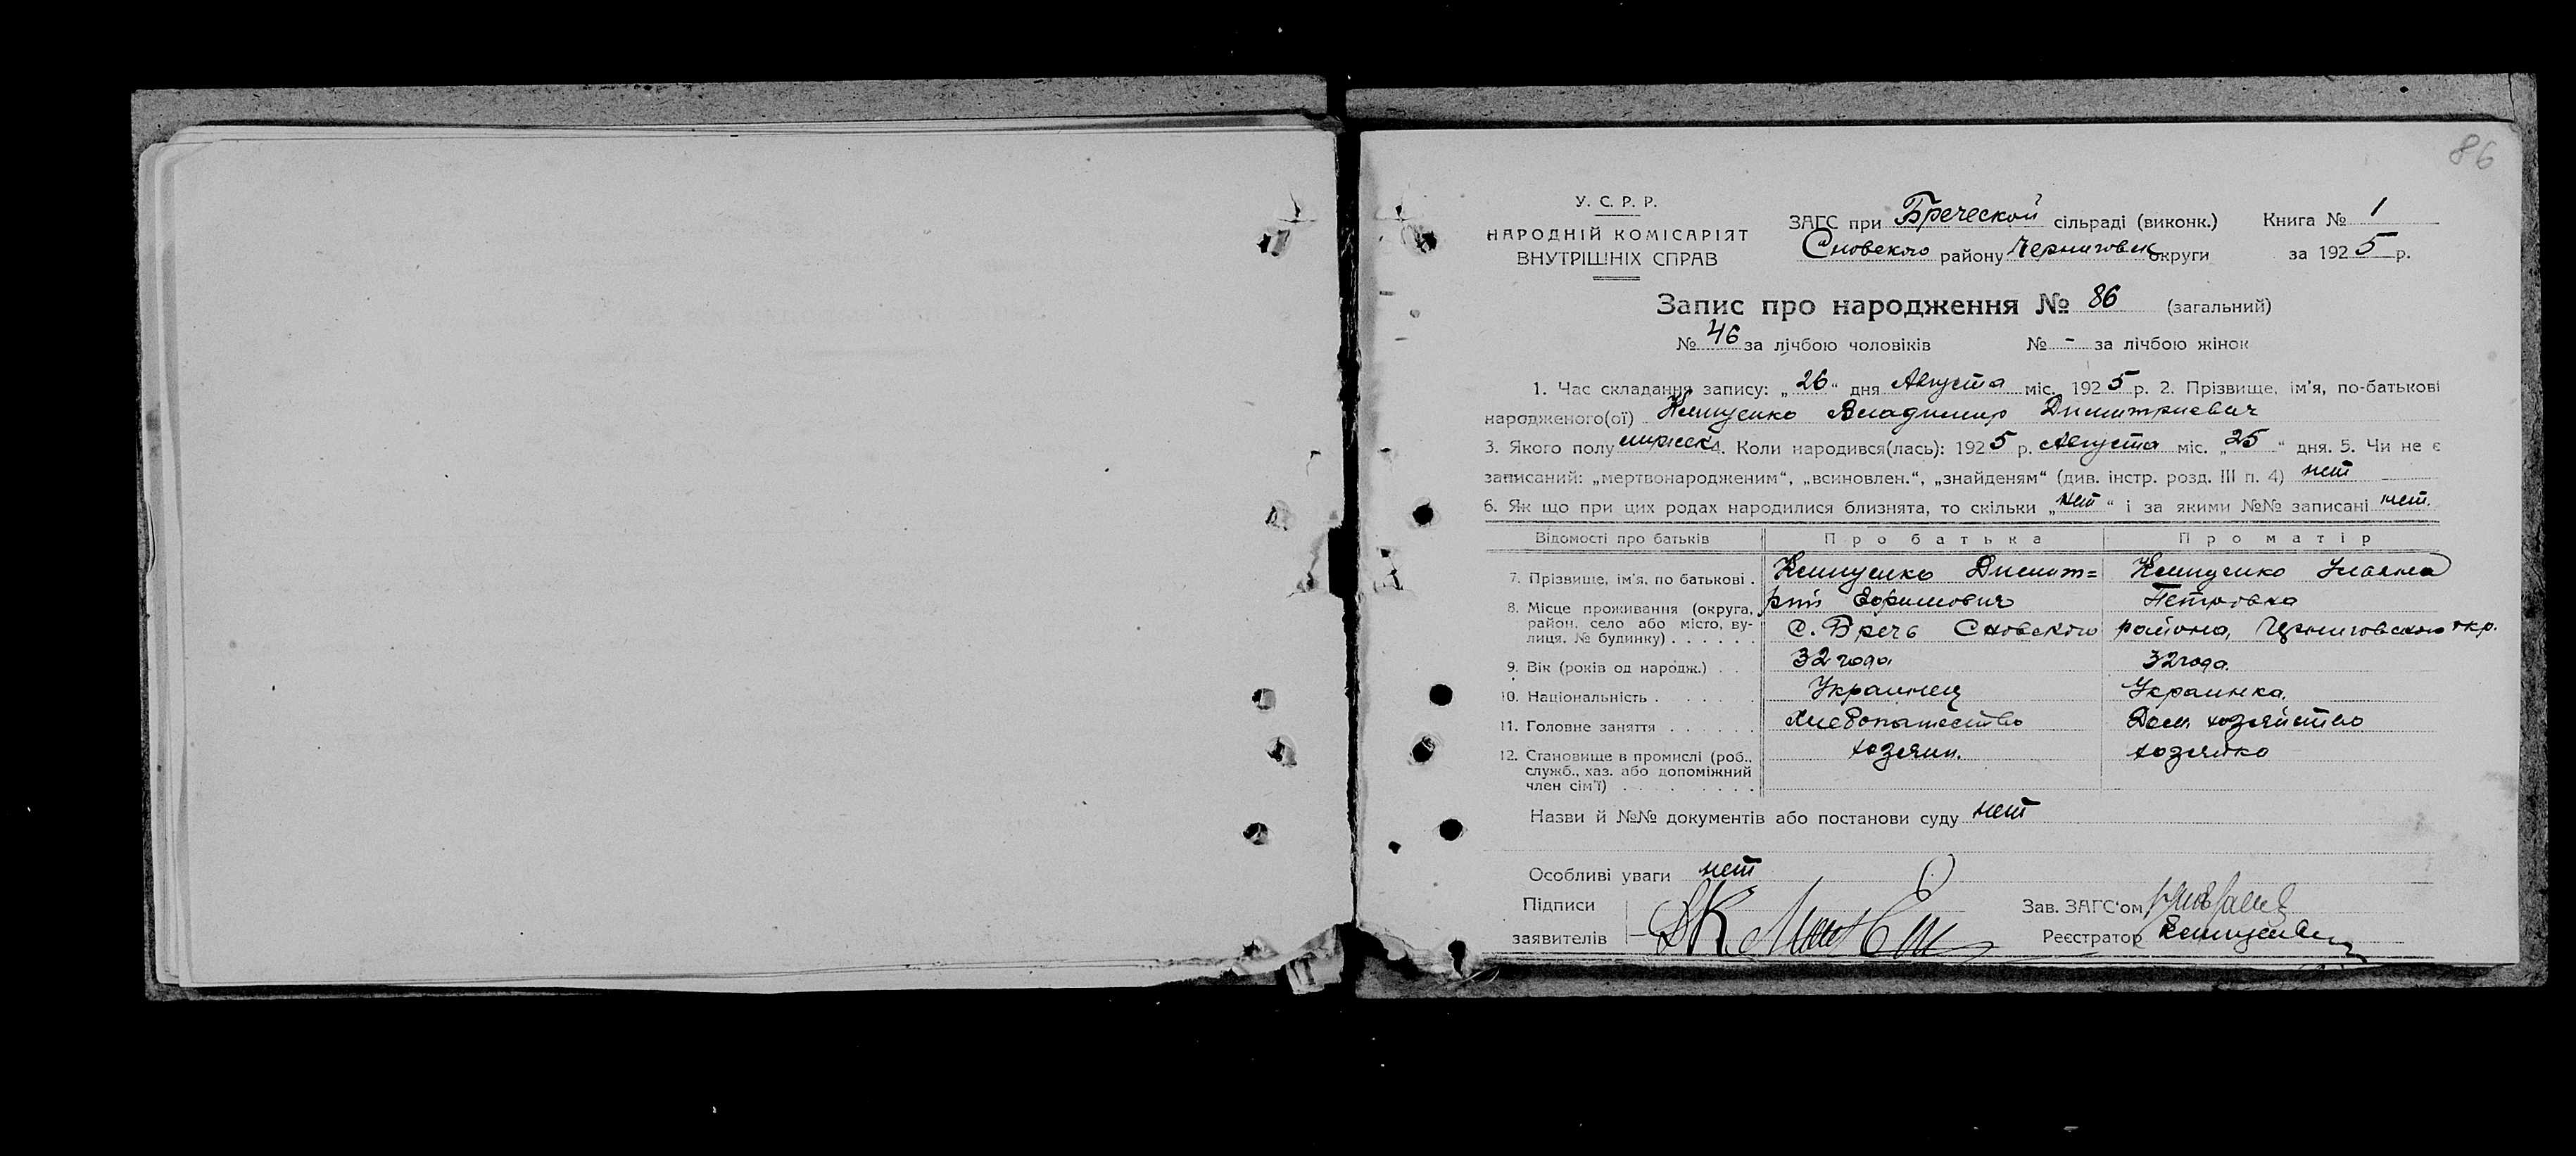 86
У. С. Р. Р.
НАРОДНІЙ КОМІСАРІЯТ
ВНУТРІШНІХ СПРАВ
ЗАГС при Бреческой сільраді (виконк.) Книга № 1
Сновского району Черниговск округи за 1925 р.
Запис про народження № 86 (загальний)
№ 46 за лічбою чоловіків № - за лічбою жінок
1. Час складання запису: „26“ дня Августа міс. 1925 р. 2. Прізвище, ім'я, по-батькові
народженого(ої) Владимир Димитриевич
3. Якого полу мужск 4. Коли народився(лась): 1925 р. Августа міс. „25“ дня. 5. Чи не є
записаний: „мертвонародженим“, „всиновлен.“, „знайденям“ (див. інстр. розд. III п. 4) нет
6. Як що при цих родах народилися близнята, то скільки „нет“ і за якими №№ записані нет.
Відомості про батьків Про батька Про матір
7. Прізвище, ім'я, по батькові . Димит=
рий Ефимович Петровна
8. Місце проживання (округа,
район, село або місто, ву-
лиця, № будинку) . . . . . . С. Бречь Сновского района, Черниговского окр.
9. Вік (років од народж.) . . 32 года 32 года.
10. Національність . . . . . Украинец Украинка.
11. Головне заняття . . . . . . Хлебопашество Дом. хозяйство
12. Становище в промислі (роб.,
служб., хаз. або допоміжний
член сім'ї) . . . . . . . . хозяин. хозяйка
Назви й №№ документів або постанови суду нет
Особливі уваги нет
Підписи
заявителів
Зав. ЗАГС'ом
Реєстратор